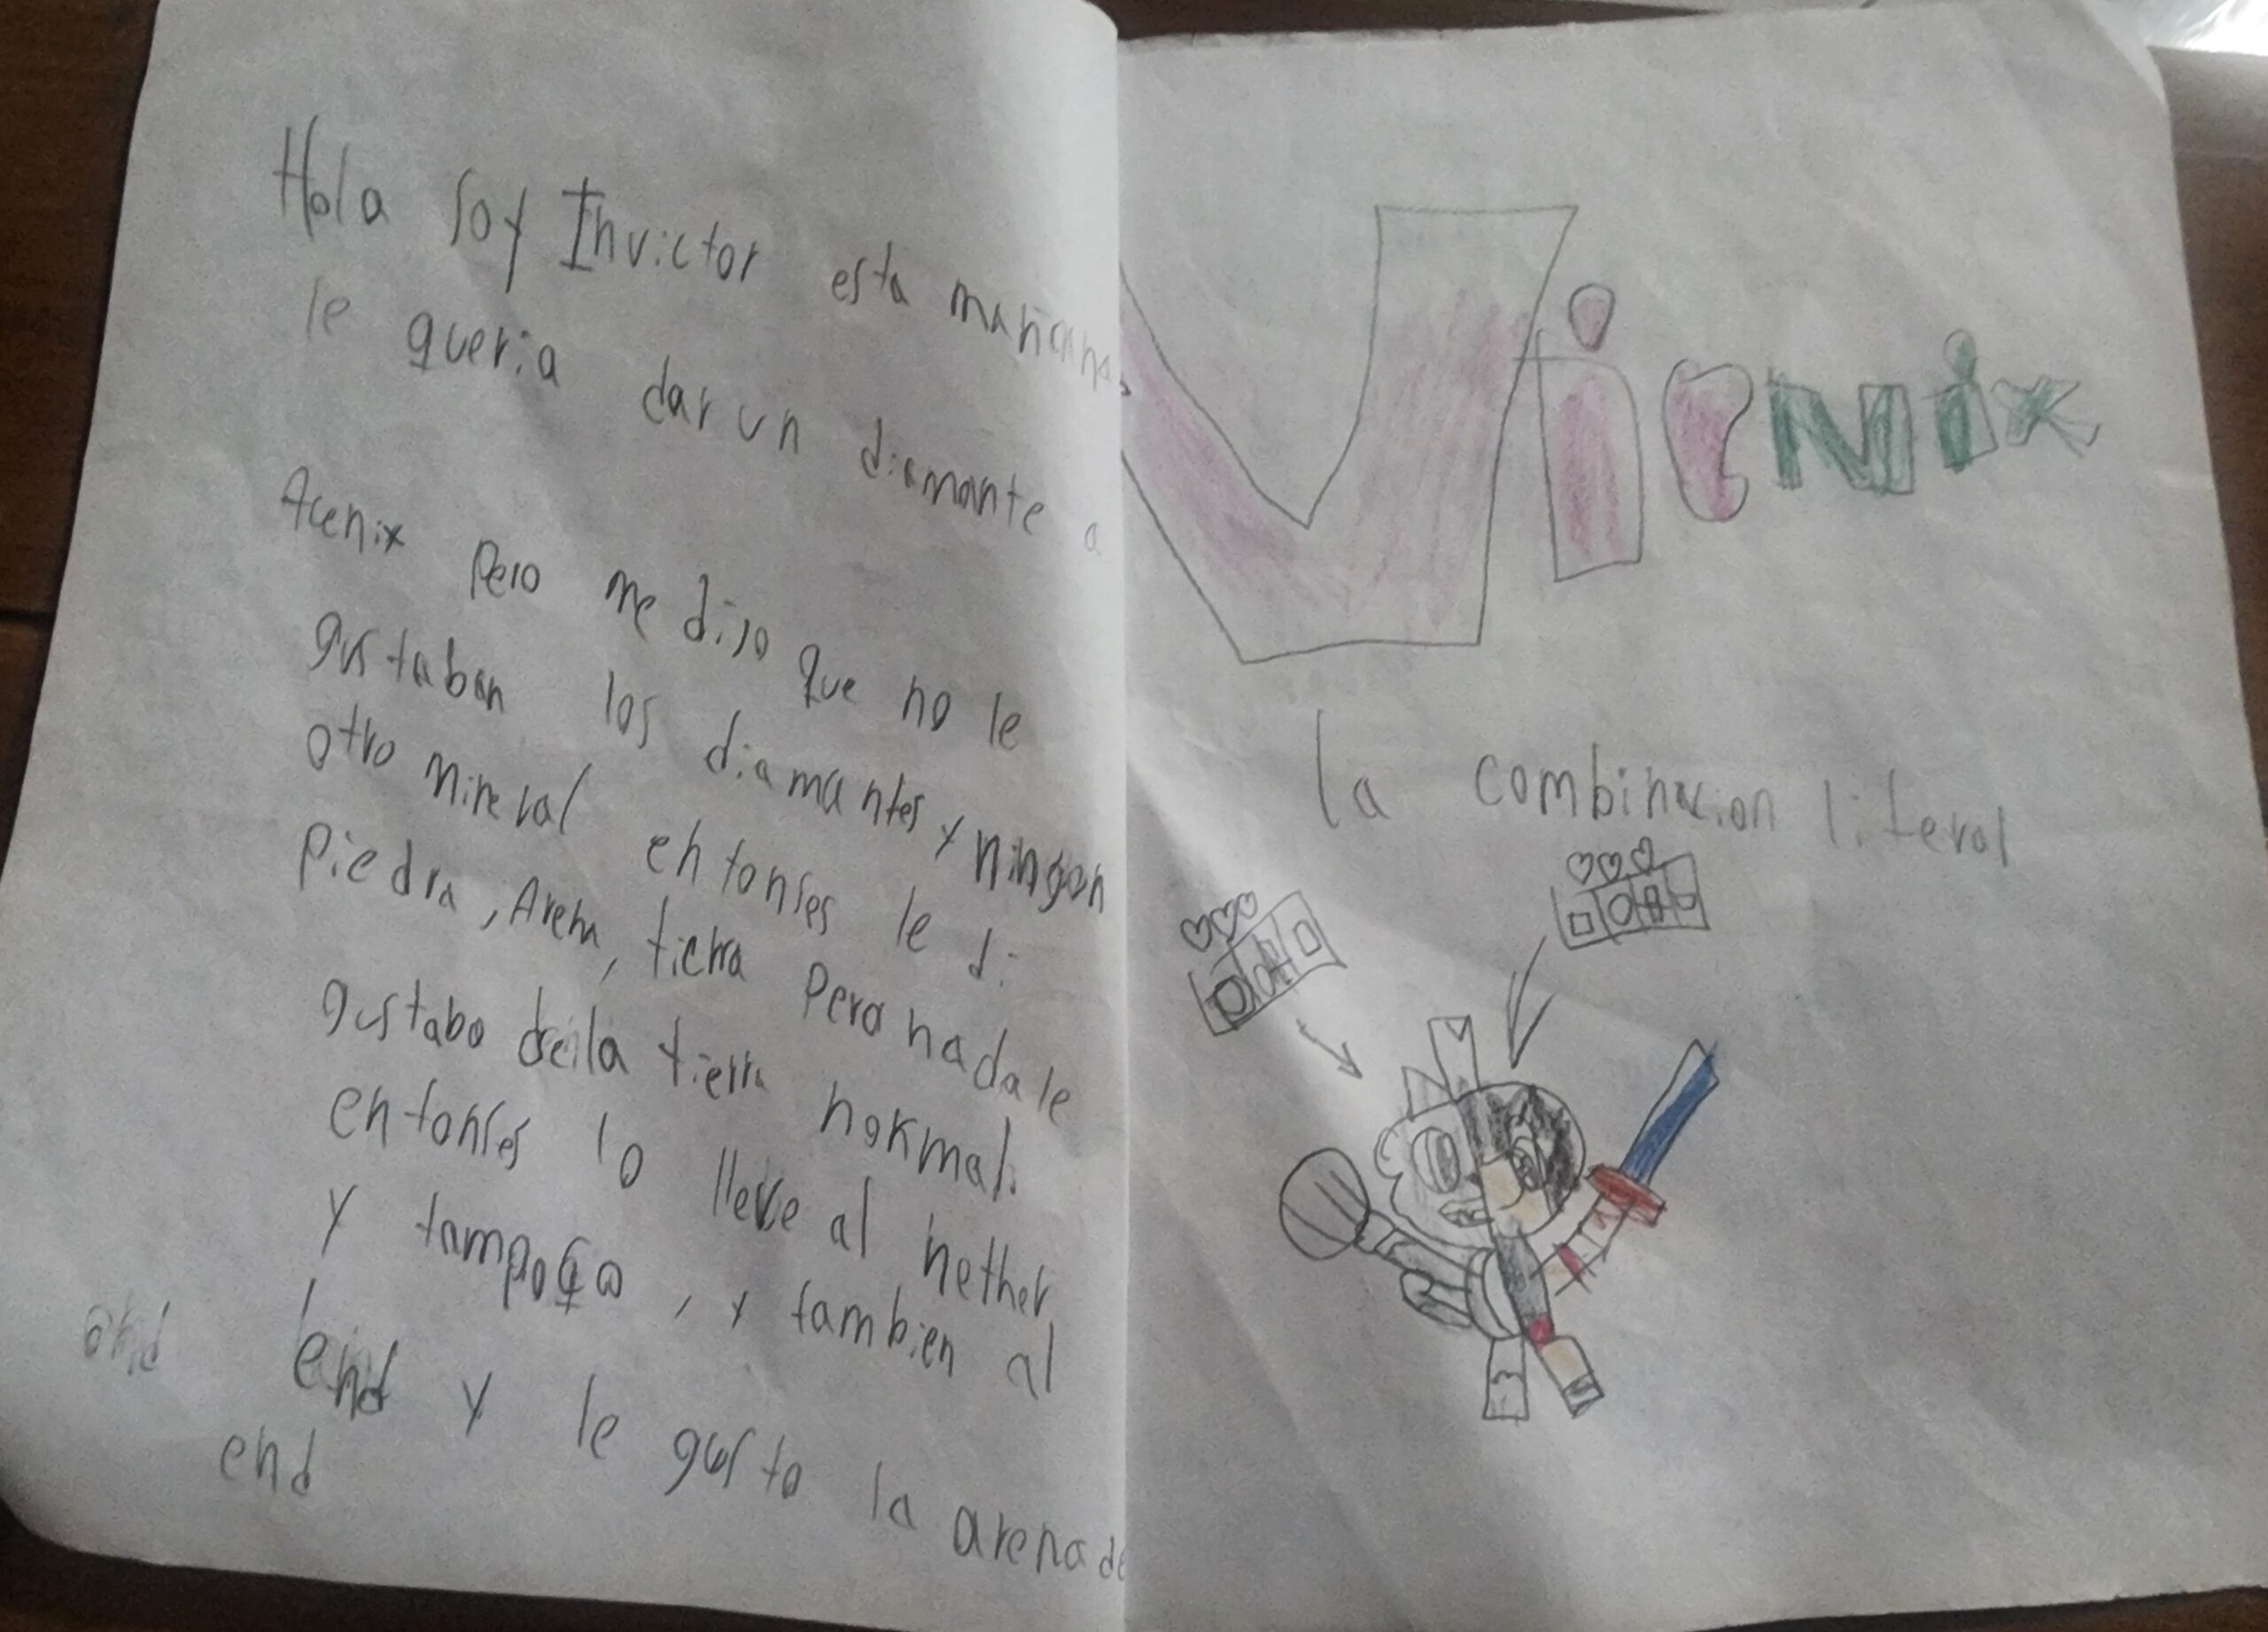 Hola soy Invictor esta mañana
le queria dar un diamante a
Acenix pero me dijo que no le
gustaban los diamantes y ningon
otro mineral entonses le di
piedra, Arena, tierra pero nada le
gustabo de la tierra normal.
entonses lo lleve al nether
y tampoco, y tambien al
end y le gusto la arena de
end
end
Vicnix
la combinacion literal